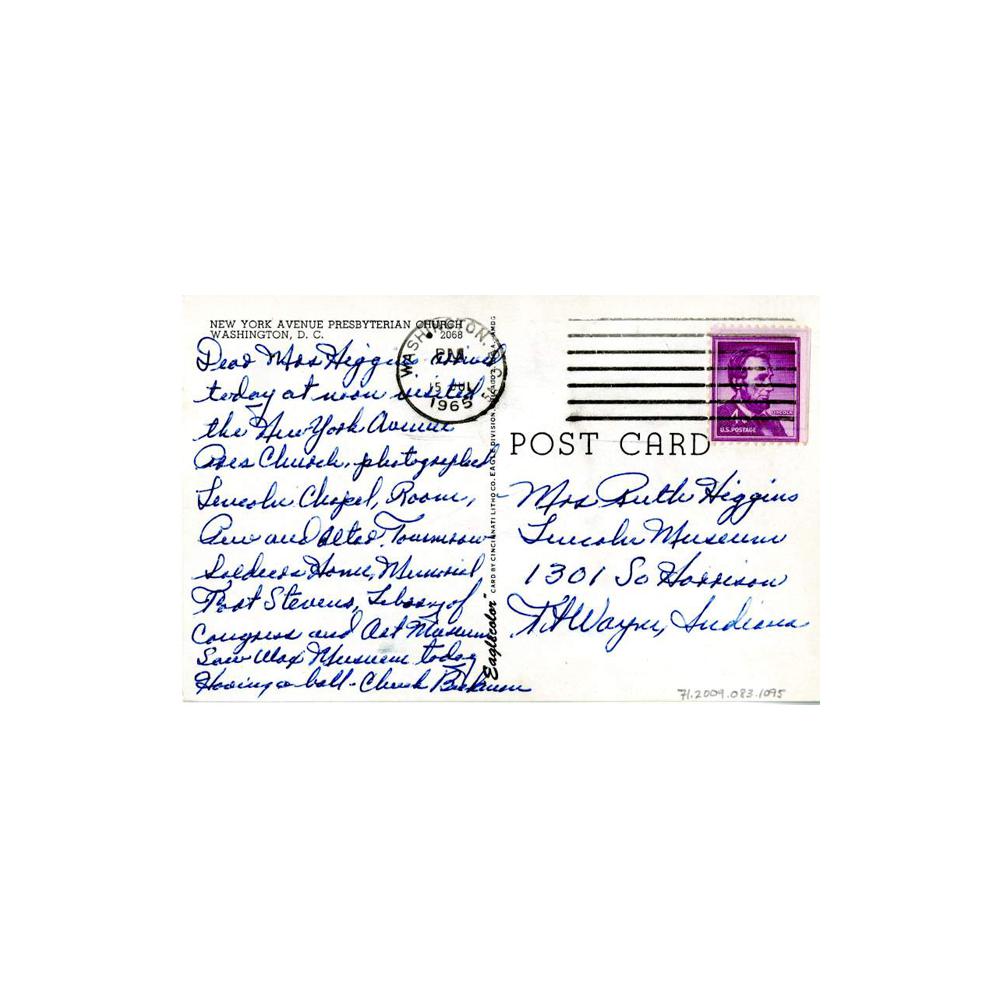 NEW YORK AVENUE PRESBYTERIAN CHURCH
WASHINGTON, D. C. 2068
Dear Mrs Higgins arrived
today at noon visited
the New York Avenue
Pres Church, photographed
Lincoln Chapel, Room,
Pew and Altar. Tomorrow
Soldiers Home, Memorial,
Fort Stevens, Library of
Congress and Art Museum
Saw Wax Museum today
Having a ball - Chuck
"Eaglecolor" CARD BY CINCINNATI LITHO CO. EAGLE DIVISION,
WASHINGTON, D.C.
PM
15 JUL
1965
LINCOLN
U.S. POSTAGE
POST CARD
Mrs Ruth Higgins
Lincoln Museum
1301 So Harrison
Ft Wayne, Indiana
71.2009.083.1095